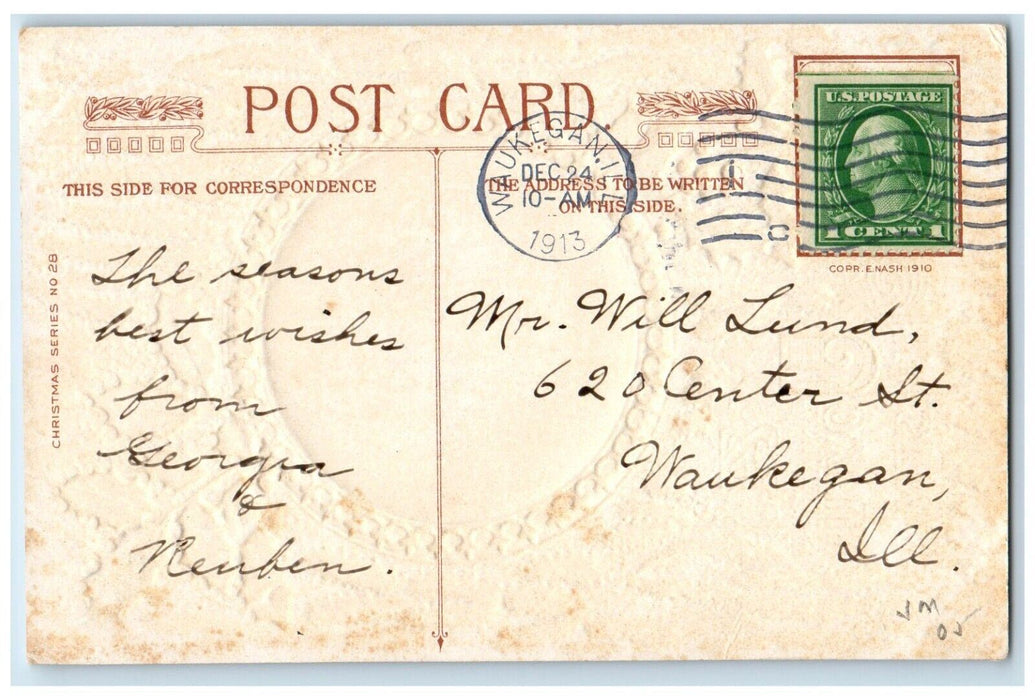 POST CARD.
THIS SIDE FOR CORRESPONDENCE
THE ADDRESS TO BE WRITTEN
ON THIS SIDE.
WAUKEGAN, ILL.
DEC 24
10-AM
1913
U.S. POSTAGE
1 CENT 1
COPR. E. NASH 1910
CHRISTMAS SERIES NO 28
The seasons
best wishes
from
Georgia
&
Reuben.
Mr. Will Lund,
620 Center St.
Waukegan,
Ill.